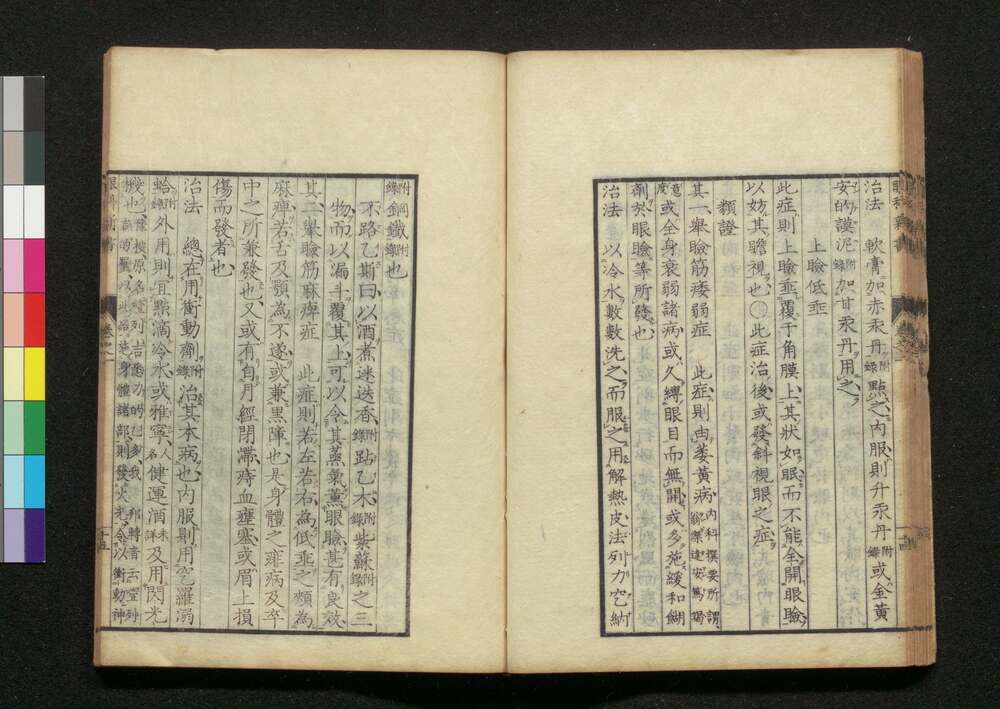 治法　軟膏加赤汞丹附錄點之內服則升汞丹附錄或金黃
安的謨泥附錄加甘汞丹用之
上瞼低垂
此症則上瞼垂覆于角膜上其狀如眠而不能全開眼瞼
以妨其瞻視也○此症治後或發斜視眼之症
類證
其一舉瞼筋痿弱症　此症則由萎黃病內科撰要所謂
或全身衰弱諸病或久縛眼目而無開或多施緩和餬
劑於眼瞼等所發也
治法　以冷水數數洗之而服之用解熱皮法列力空納
附錄鋼鐵附錄也
不路乙斯曰以酒煮迷迭香附錄跕乙木附錄紫蘇附錄之三
物而以漏斗覆其上可以令其蒸氣薰眼瞼甚有良效
其二舉瞼筋麻痺症　此症則若左若右為低垂之頰為
麻痺若舌及顎為不遂或兼黑障也是身體之雍病及卒
中之所兼發也又或有自月經閉滯痔血壅塞或眉上損
傷而發者也
治法　總在用衝動劑附錄治其本病也內服則用
蛤附錄外用則宜點滴冷水或雅寧人名健運酒詳未及用閃光
十五